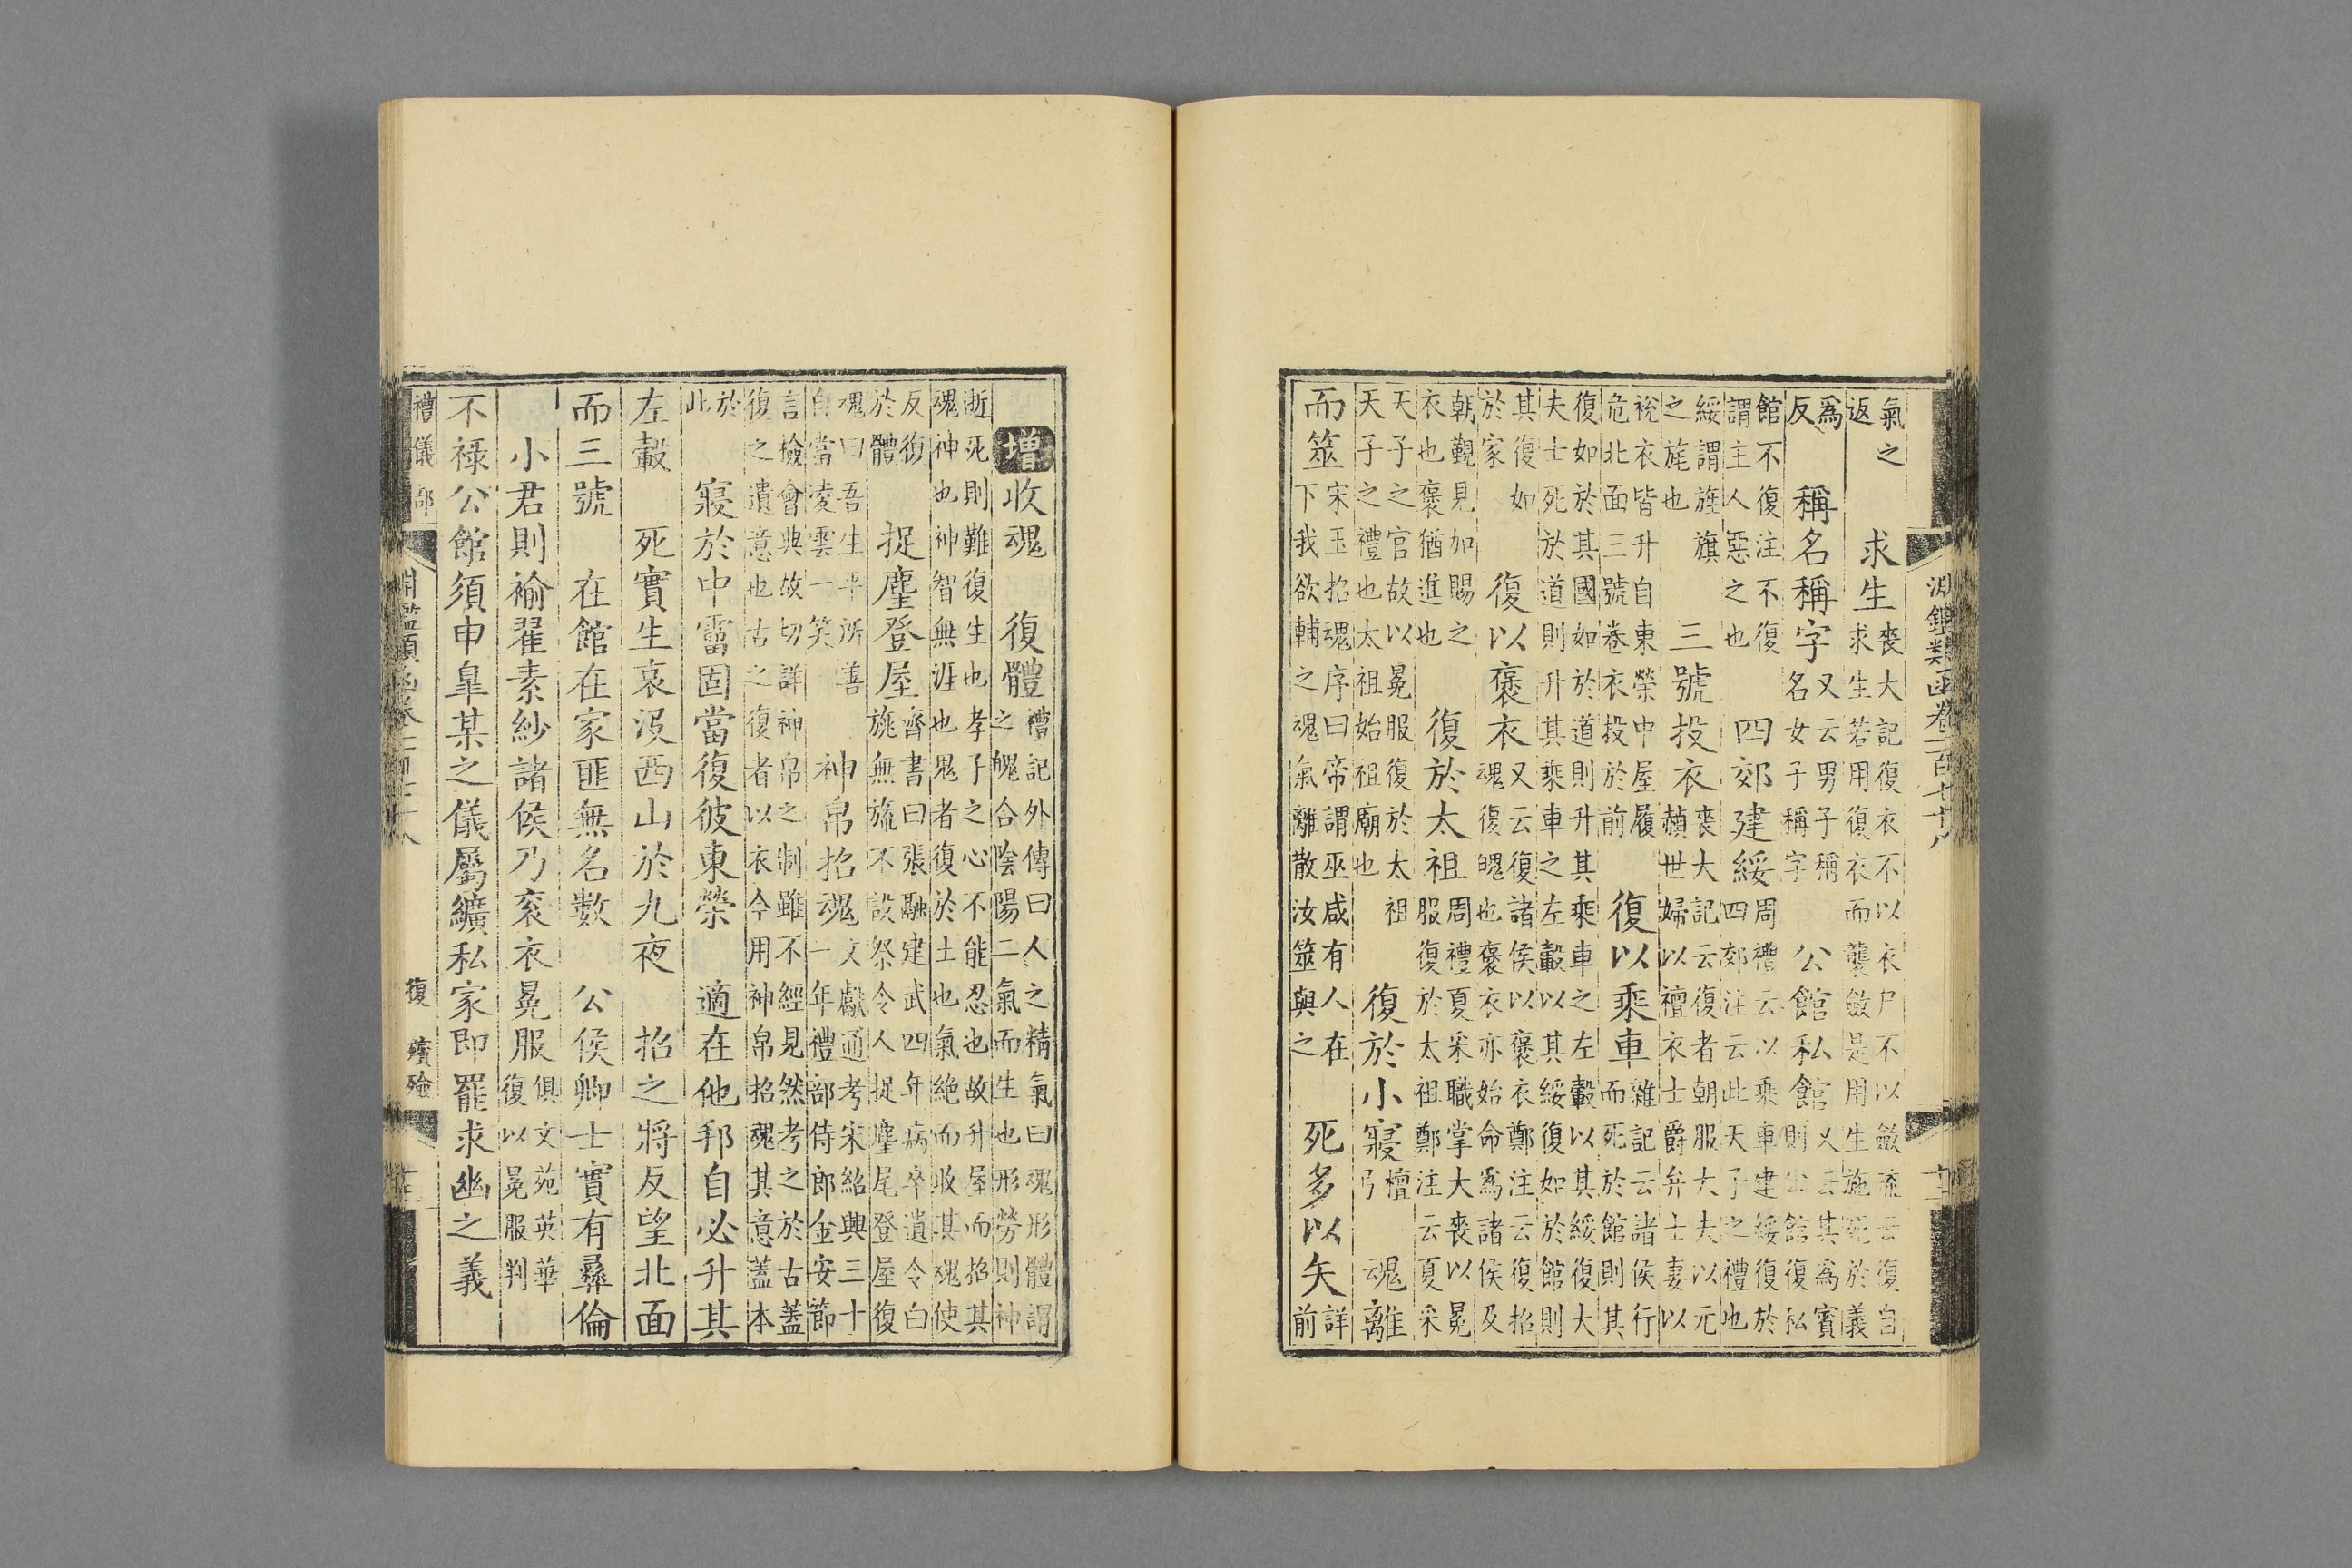 淵鑑類函卷一百七十八 十二
氣之返 求生 喪大記復衣不以衣尸不以斂疏云復自求生若用復衣而襲斂是用生施死於義
爲反 稱名稱字 又云男子稱名女子稱字 公館私館 又云其爲賓則公館復私
館不復注不復謂主人惡之也 四郊建綏 周禮云以乘車建綏復於四郊注云此天子之禮也
綏謂旌旗之旄也 三號投衣 喪大記云復者朝服大夫以元赬世婦以襢衣士爵弁士妻以
稅衣皆升自東榮中屋履危北面三號卷衣投於前 復以乘車 雜記云諸侯行而死於館則其
復如於其國如於道則升其乘車之左轂以其綏復大夫士死於道則升其乘車之左轂以其綏復如於館則
其復如於家 復以褒衣 又云復諸侯以褒衣鄭注云復招魂復魄也褒衣亦始命爲諸侯及
朝覲見加賜之衣也褒猶進也 復於太祖 周禮夏采職掌大喪以冕服復於太祖鄭注云夏采
天子之官故以冕服復於太祖天子之禮也太祖始祖廟也 復於小寢 檀弓 魂離
而筮 宋玉招魂序曰帝謂巫咸有人在下我欲輔之魂氣離散汝筮與之 死多以矢 詳前
增 收魂 復體 禮記外傳曰人之精氣曰魂形體謂之魄合陰陽二氣而生也形勞則神
逝死則難復生也孝子之心不能忍也故升屋而招其魂神也神智無涯也鬼者復於土也氣絕而收其魂使
反復於體 捉麈登屋 齊書曰張融建武四年病卒遺令白旐無旒不設祭令人捉麈尾登屋復
魂曰吾生平所善自當凌雲一笑 神帛招魂 文獻通考宋紹興三十一年禮部侍郎金安節
言檢會典故切詳神帛之制雖不經見然考之於古蓋復之遺意也古之復者以衣今用神帛招魂其意蓋本
於此 寢於中霤固當復彼東榮 適在他邦自必升其
左轂 死實生哀沒西山於九夜 招之將反望北面
而三號 在館在家匪無名數 公侯卿士實有彞倫
小君則褕翟素紗諸侯乃袞衣冕服 俱文苑英華復以冕服判
不祿公館須申臯某之儀屬纊私家即罷求幽之義
禮儀部 淵鑑類函卷一百七十八 復 殯殮 十二